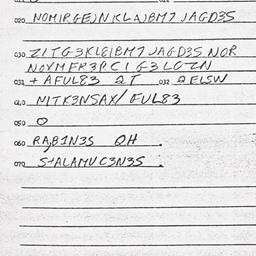 020 NOMIRGEJNKLAJBM7 JAGD3S
030 ZITG3KLEIBM7 JAGD3S NOR
NOVMFR3RCI G3LOZN
031 + AFUL83 2T 032 2ELSW
040 NITK3NSAX/FUL83
050 O
060 RABIN3S OH .
070 S+ALAMUC3N3S .